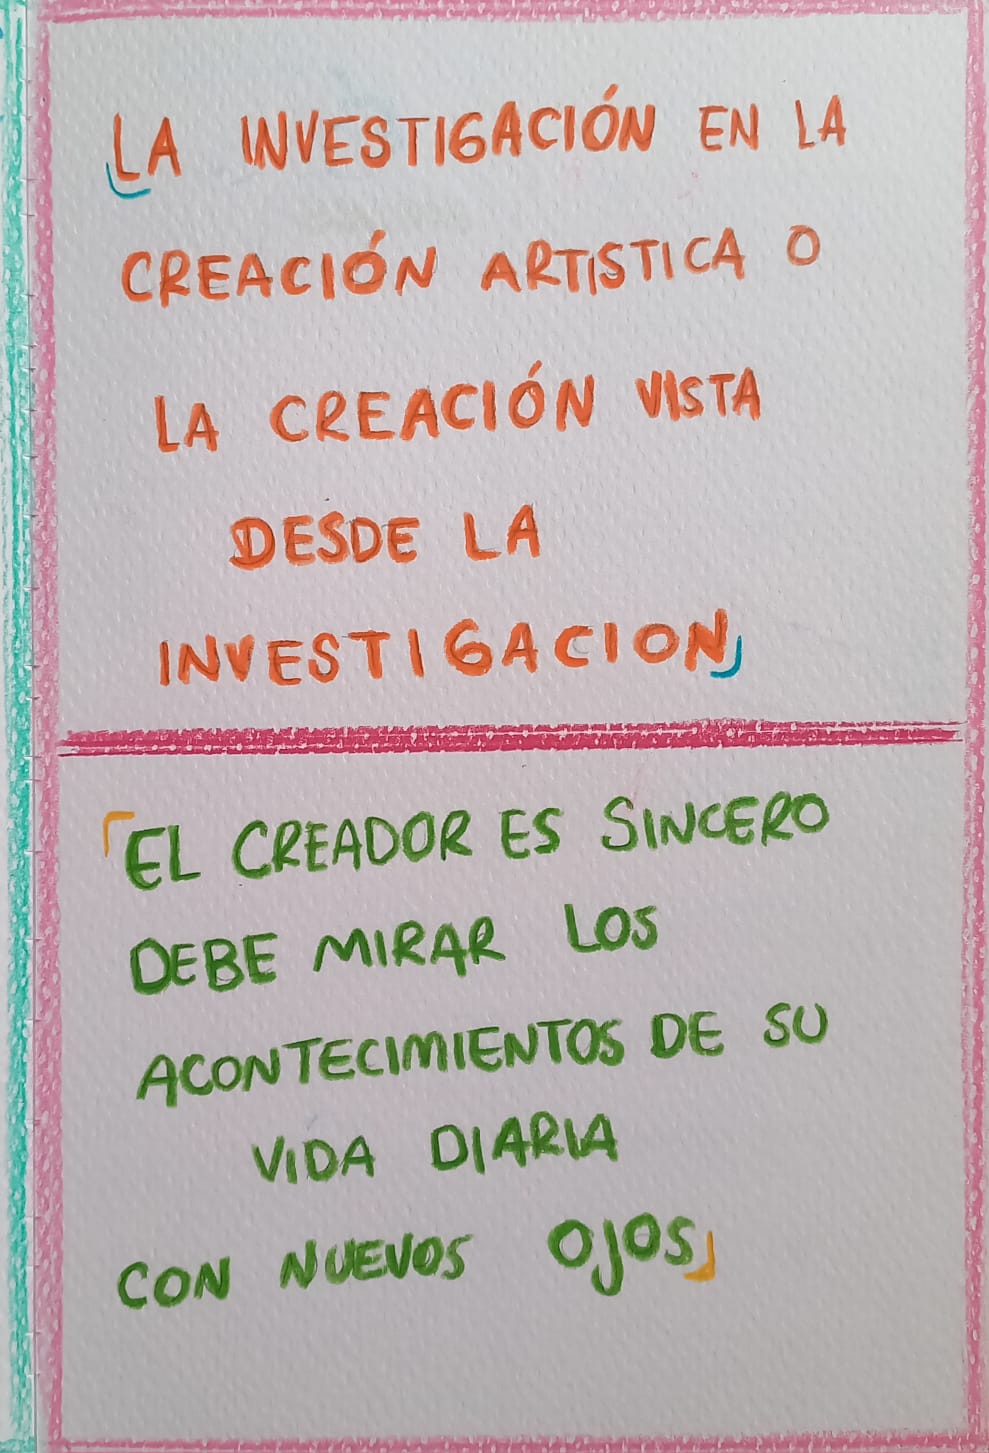 LA INVESTIGACIÓN EN LA
CREACIÓN ARTISTICA O
LA CREACIÓN VISTA
DESDE LA
INVESTIGACION」
「EL CREADOR ES SINCERO
DEBE MIRAR LOS
ACONTECIMIENTOS DE SU
VIDA DIARIA
CON NUEVOS OJOS」